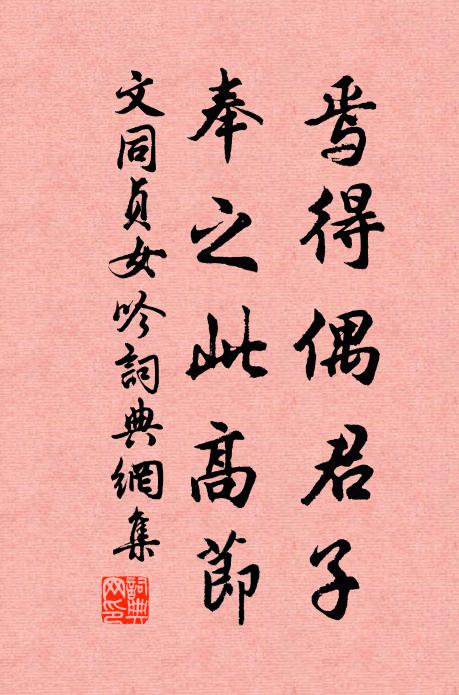 焉得偶君子
奉之此高節
文同貞女吟詞典網集
詞典網印